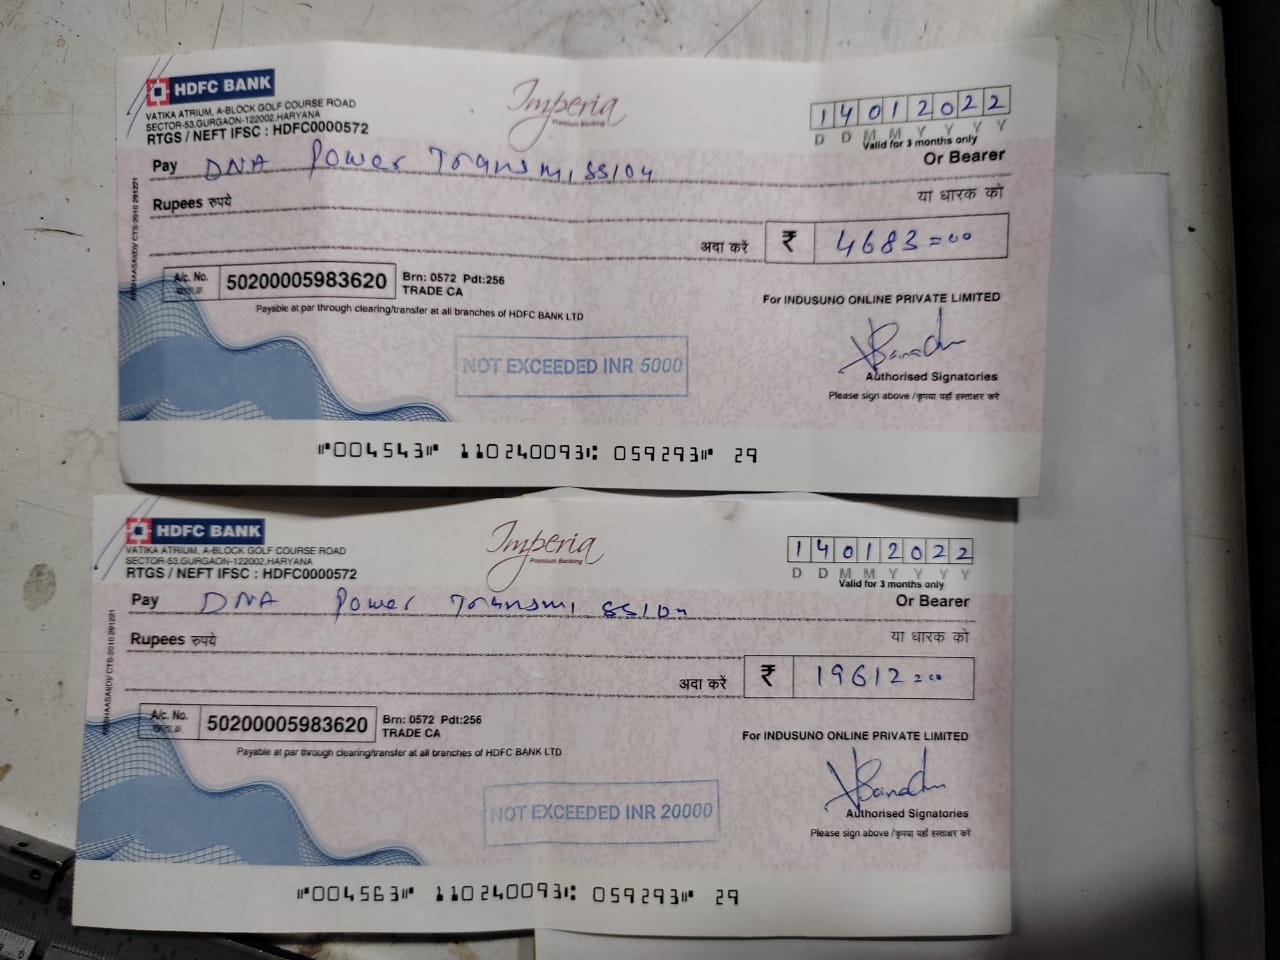 HDFC BANK
VATIKA ATRIUM, A-BLOCK GOLF COURSE ROAD
SECTOR-53,GURGAON-122002,HARYANA
RTGS / NEFT IFSC : HDFC0000572
Imperia
Premium Banking
14012022
D D M M Y Y Y Y
Valid for 3 months only
Pay DNA Power Transmission Or Bearer
Rupees रुपये या धारक को
अदा करें ₹ 4683=00
A/c. No. 50200005983620 Brn: 0572 Pdt:256
TRADE CA
Payable at par through clearing/transfer at all branches of HDFC BANK LTD
For INDUSUNO ONLINE PRIVATE LIMITED
NOT EXCEEDED INR 5000
Authorised Signatories
Please sign above /कृपया यहाँ हस्ताक्षर करें
⑈004543⑈ 110240093⑆ 059293⑈ 29
HDFC BANK
VATIKA ATRIUM, A-BLOCK GOLF COURSE ROAD
SECTOR-53,GURGAON-122002,HARYANA
RTGS / NEFT IFSC : HDFC0000572
Imperia
Premium Banking
14012022
D D M M Y Y Y Y
Valid for 3 months only
Pay DNA Power Transmission Or Bearer
Rupees रुपये या धारक को
अदा करें ₹ 19612=00
A/c. No. 50200005983620 Brn: 0572 Pdt:256
TRADE CA
Payable at par through clearing/transfer at all branches of HDFC BANK LTD
For INDUSUNO ONLINE PRIVATE LIMITED
NOT EXCEEDED INR 20000
Authorised Signatories
Please sign above /कृपया यहाँ हस्ताक्षर करें
⑈004563⑈ 110240093⑆ 059293⑈ 29